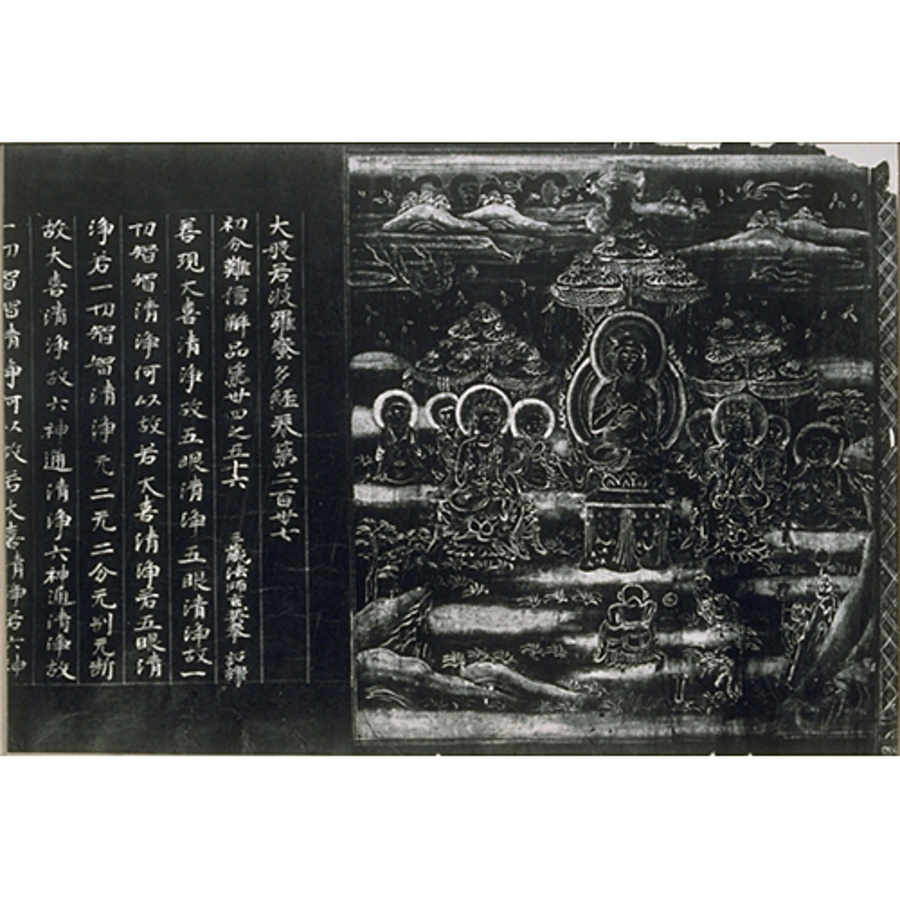 大般若波羅蜜多經卷第二百卅七
初分難信解品苐卅四之五十六 三藏法師玄奘奉 詔譯
善現大喜清淨故五眼清淨五眼清淨故一
切智智清淨何以故若大喜清淨若五眼清
淨若一切智智清淨无二无二分无別无斷
故大喜清淨故六神通清淨六神通清淨故
一切智智清淨何以故若大喜清淨若六神